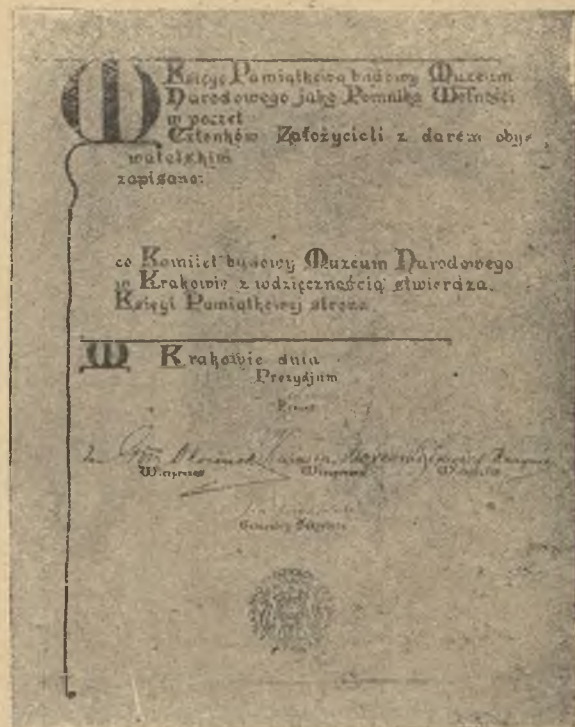 W Księgę Pamiątkową budowy Muzeum
Narodowego jako Pomnika Wolności
w poczet
Członków Założycieli z darem oby-
watelskim
zapisano:
co Komitet budowy Muzeum Narodowego
w Krakowie z wdzięcznością stwierdza.
Księgi Pamiątkowej strona
W Krakowie dnia
Prezydjum
Prezes
Wiceprezes Wiceprezes
Generalny Sekretarz